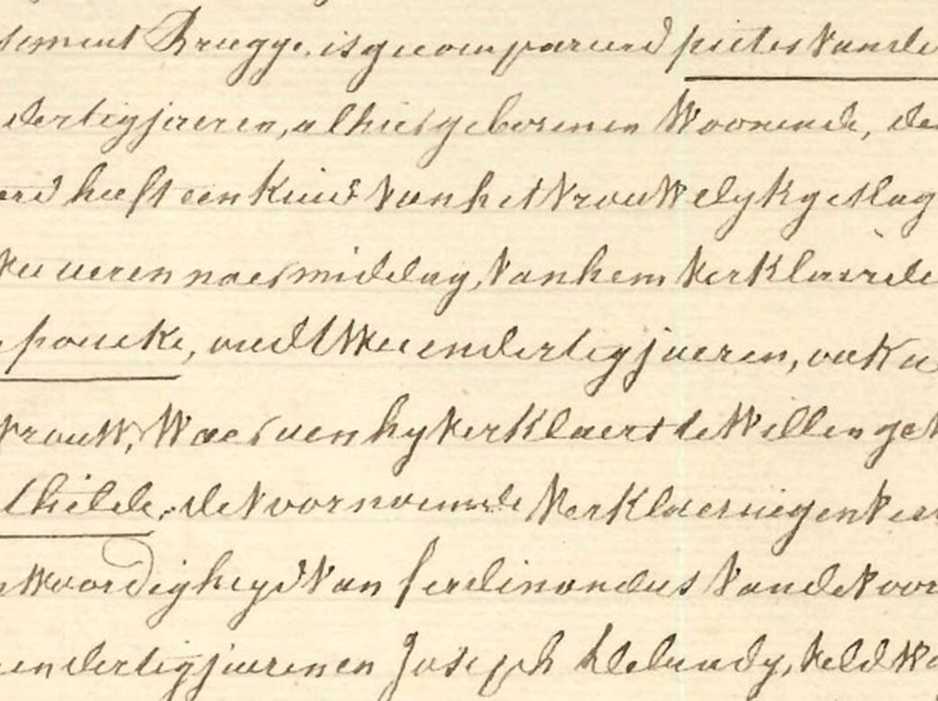 sement Brugge, is gecompareerd pieter Vande
dertig jaeren, alhier geboren en Woonende, de
erd heeft een Kind Van het Vrouwelyk geslag
wee ueren naer middag, Van hem Verklaerde
poucke, oud twee en dertig jaeren, ook a
Vrouw, Waer van hy Verklaert te Willen gev
thilde, de Voornoemde Verklaeringen
nwoordigheyd Van ferdinandus Vande Voor
en dertig jaeren en Joseph Veld Wa